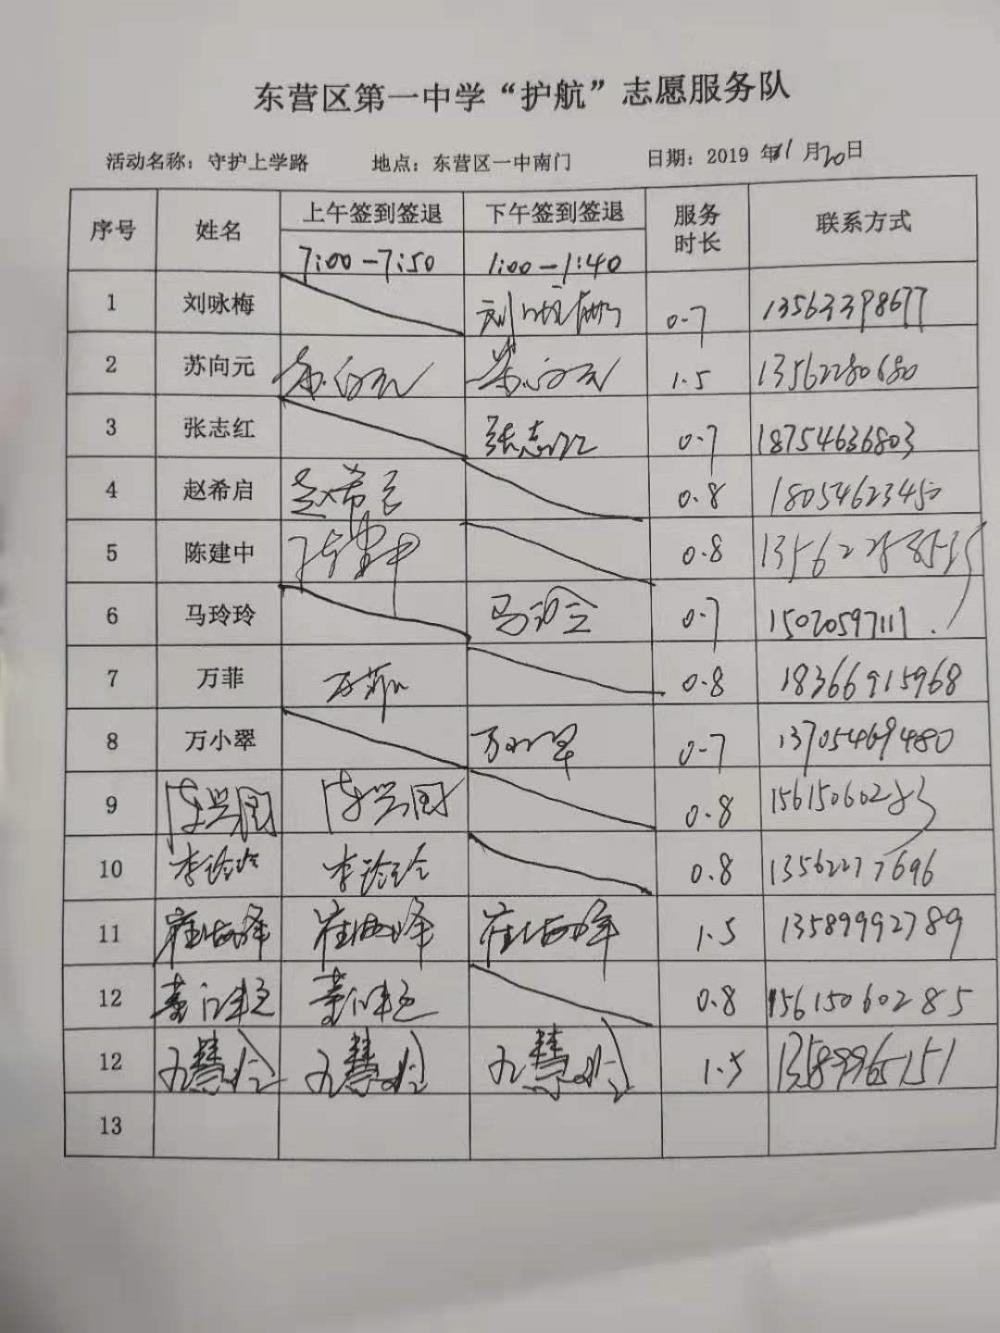 东营区第一中学“护航”志愿服务队
活动名称：守护上学路 地点：东营区一中南门 日期：2019 年11月20日
序号 姓名 上午签到签退 下午签到签退 服务时长 联系方式
7:00-7:50 1:00-1:40
1 刘咏梅 刘咏梅 0.7 13563398677
2 苏向元 苏向元 苏向元 1.5 13562280680
3 张志红 张志红 0.7 18754636803
4 赵希启 赵希启 0.8 18054623450
5 陈建中 陈建中 0.8
6 马玲玲 马玲玲 0.7 15020597111
7 万菲 万菲 0.8 18366915968
8 万小翠 万小翠 0.7 13705469480
9 陈兴国 陈兴国 0.8 15615060283
10 李玲玲 李玲玲 0.8 13562277696
11 崔海峰 崔海峰 崔海峰 1.5 13589992789
12 0.8 15615060285
12 1.5 13589965151
13